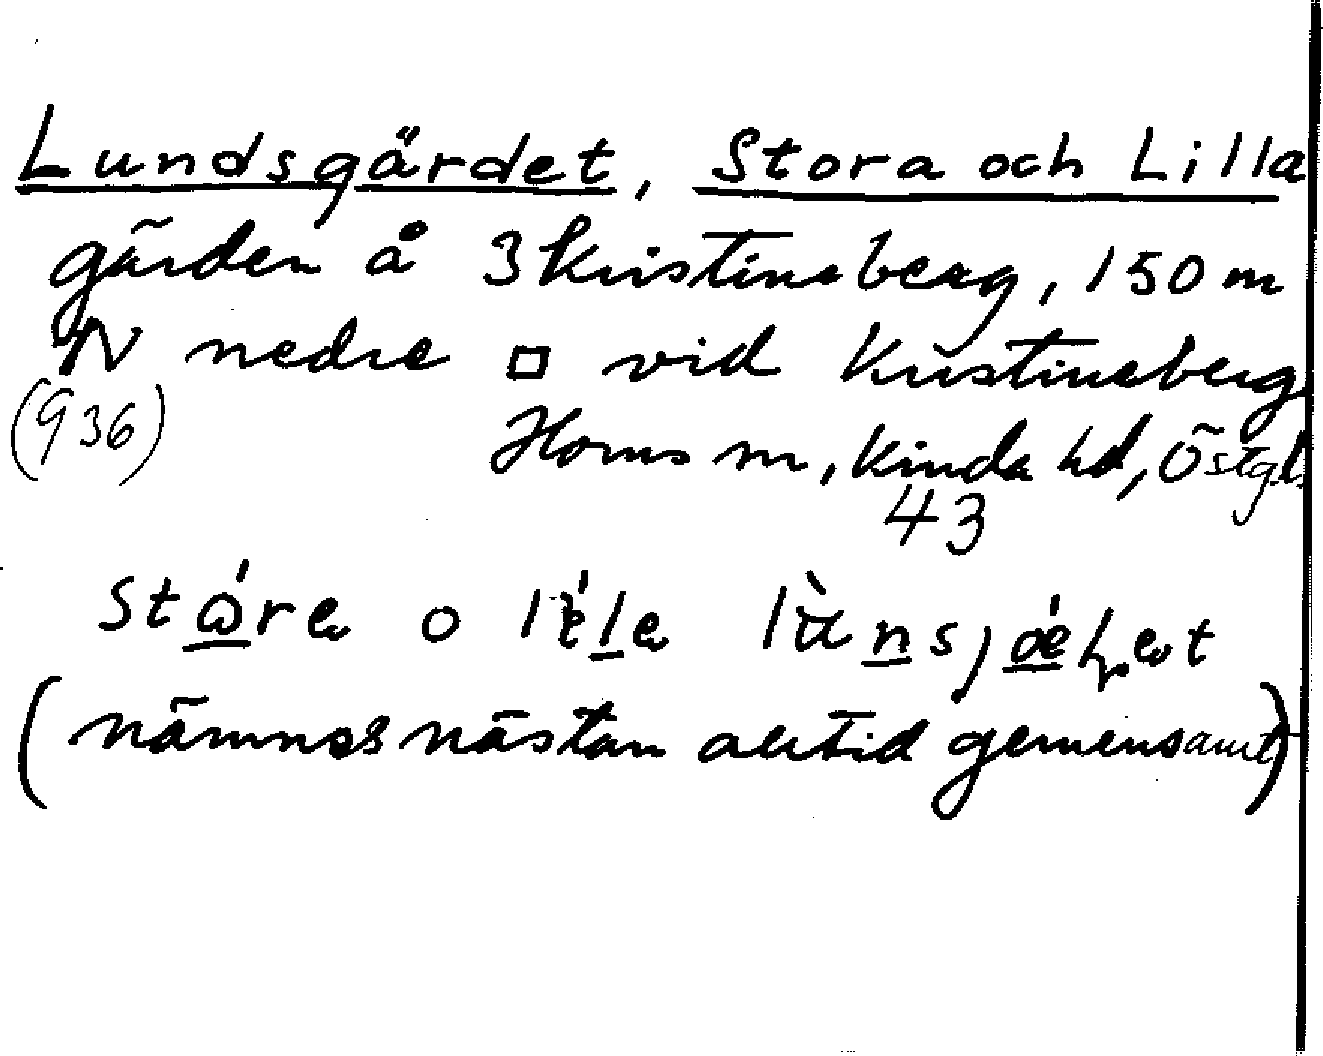 Lundsgärdet, Stora och Lilla
gärden å 3 Kristineberg, 150 m
N nedre □ vid Kristineberg
(936) Horns sn, Kinda hd, Östgl.
43
o
(nämnes nästan alltid gemensamt)